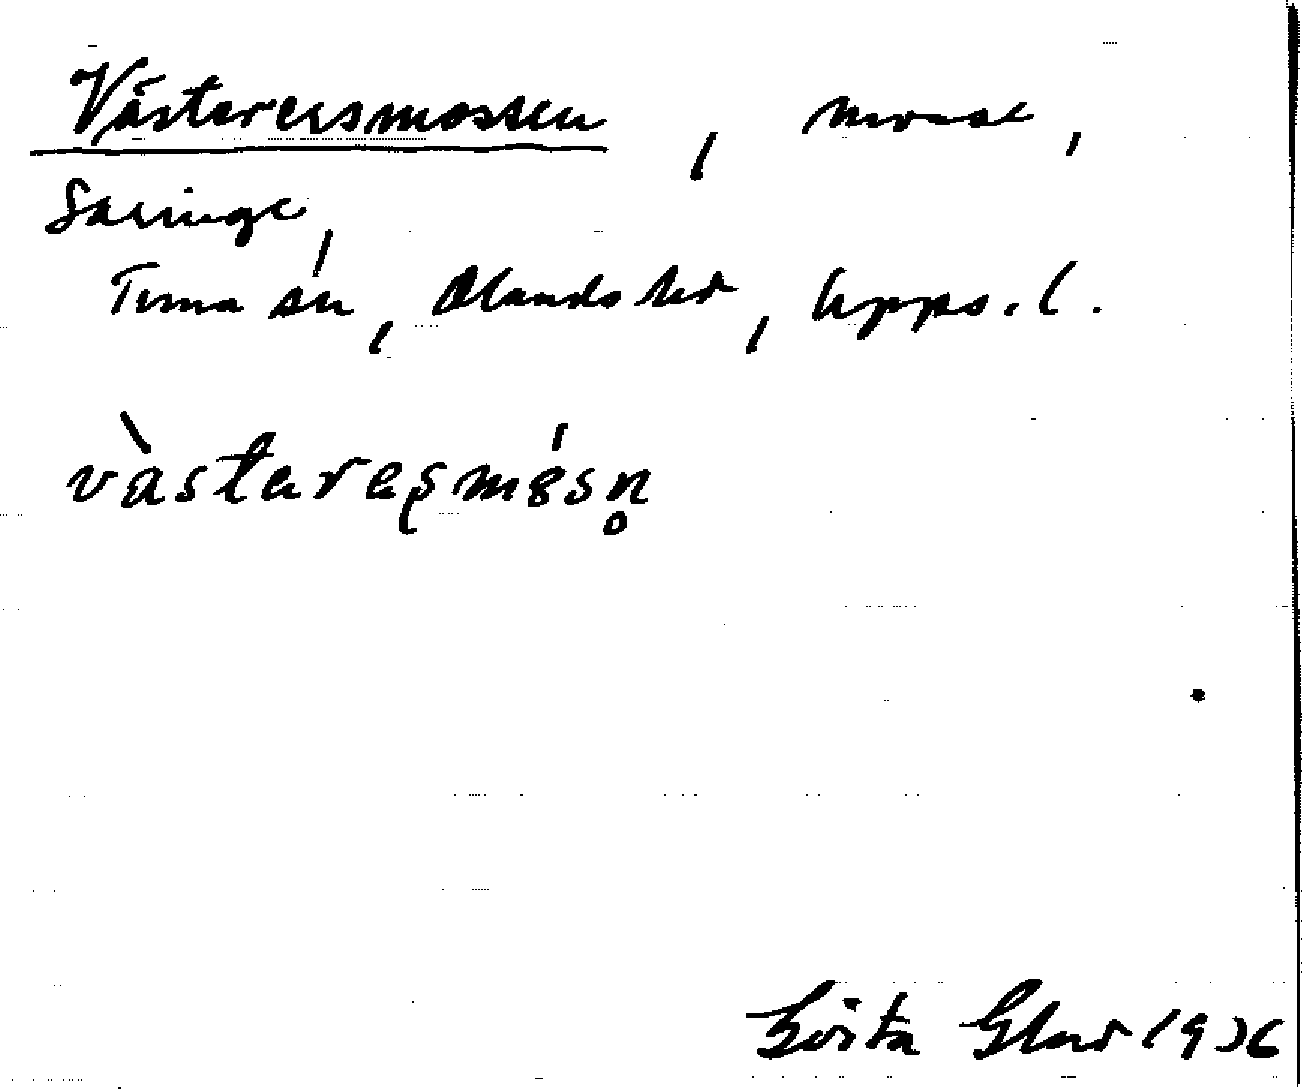 Västerersmossen, morast,
Saringe,
Tuna sn, Olands hd, Upps. l.
västeresmosn
Gösta Glar 1936